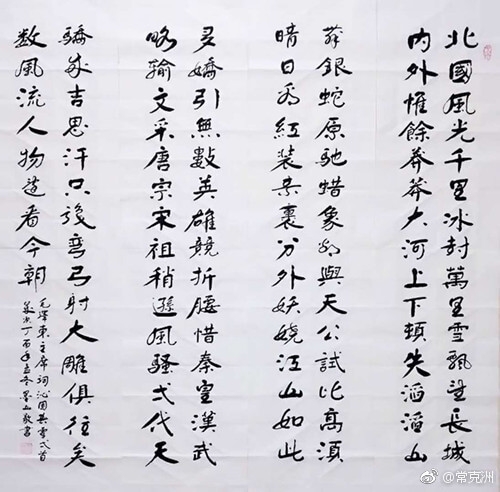 北國風光千里冰封萬里雪飄望長城
内外惟餘莽莽大河上下頓失滔滔山
舞銀蛇原馳蜡象欲與天公試比高須
晴日看紅装素裹分外妖嬈江山如此
多嬌引無數英雄競折腰惜秦皇漢武
略輸文采唐宗宋祖稍遜風騷弌代天
驕成吉思汗只識彎弓射大雕俱往矣
数風流人物還看今朝
毛澤東主席詞沁園春雪弌首
歲次丁酉年孟冬山敬書
@常克洲